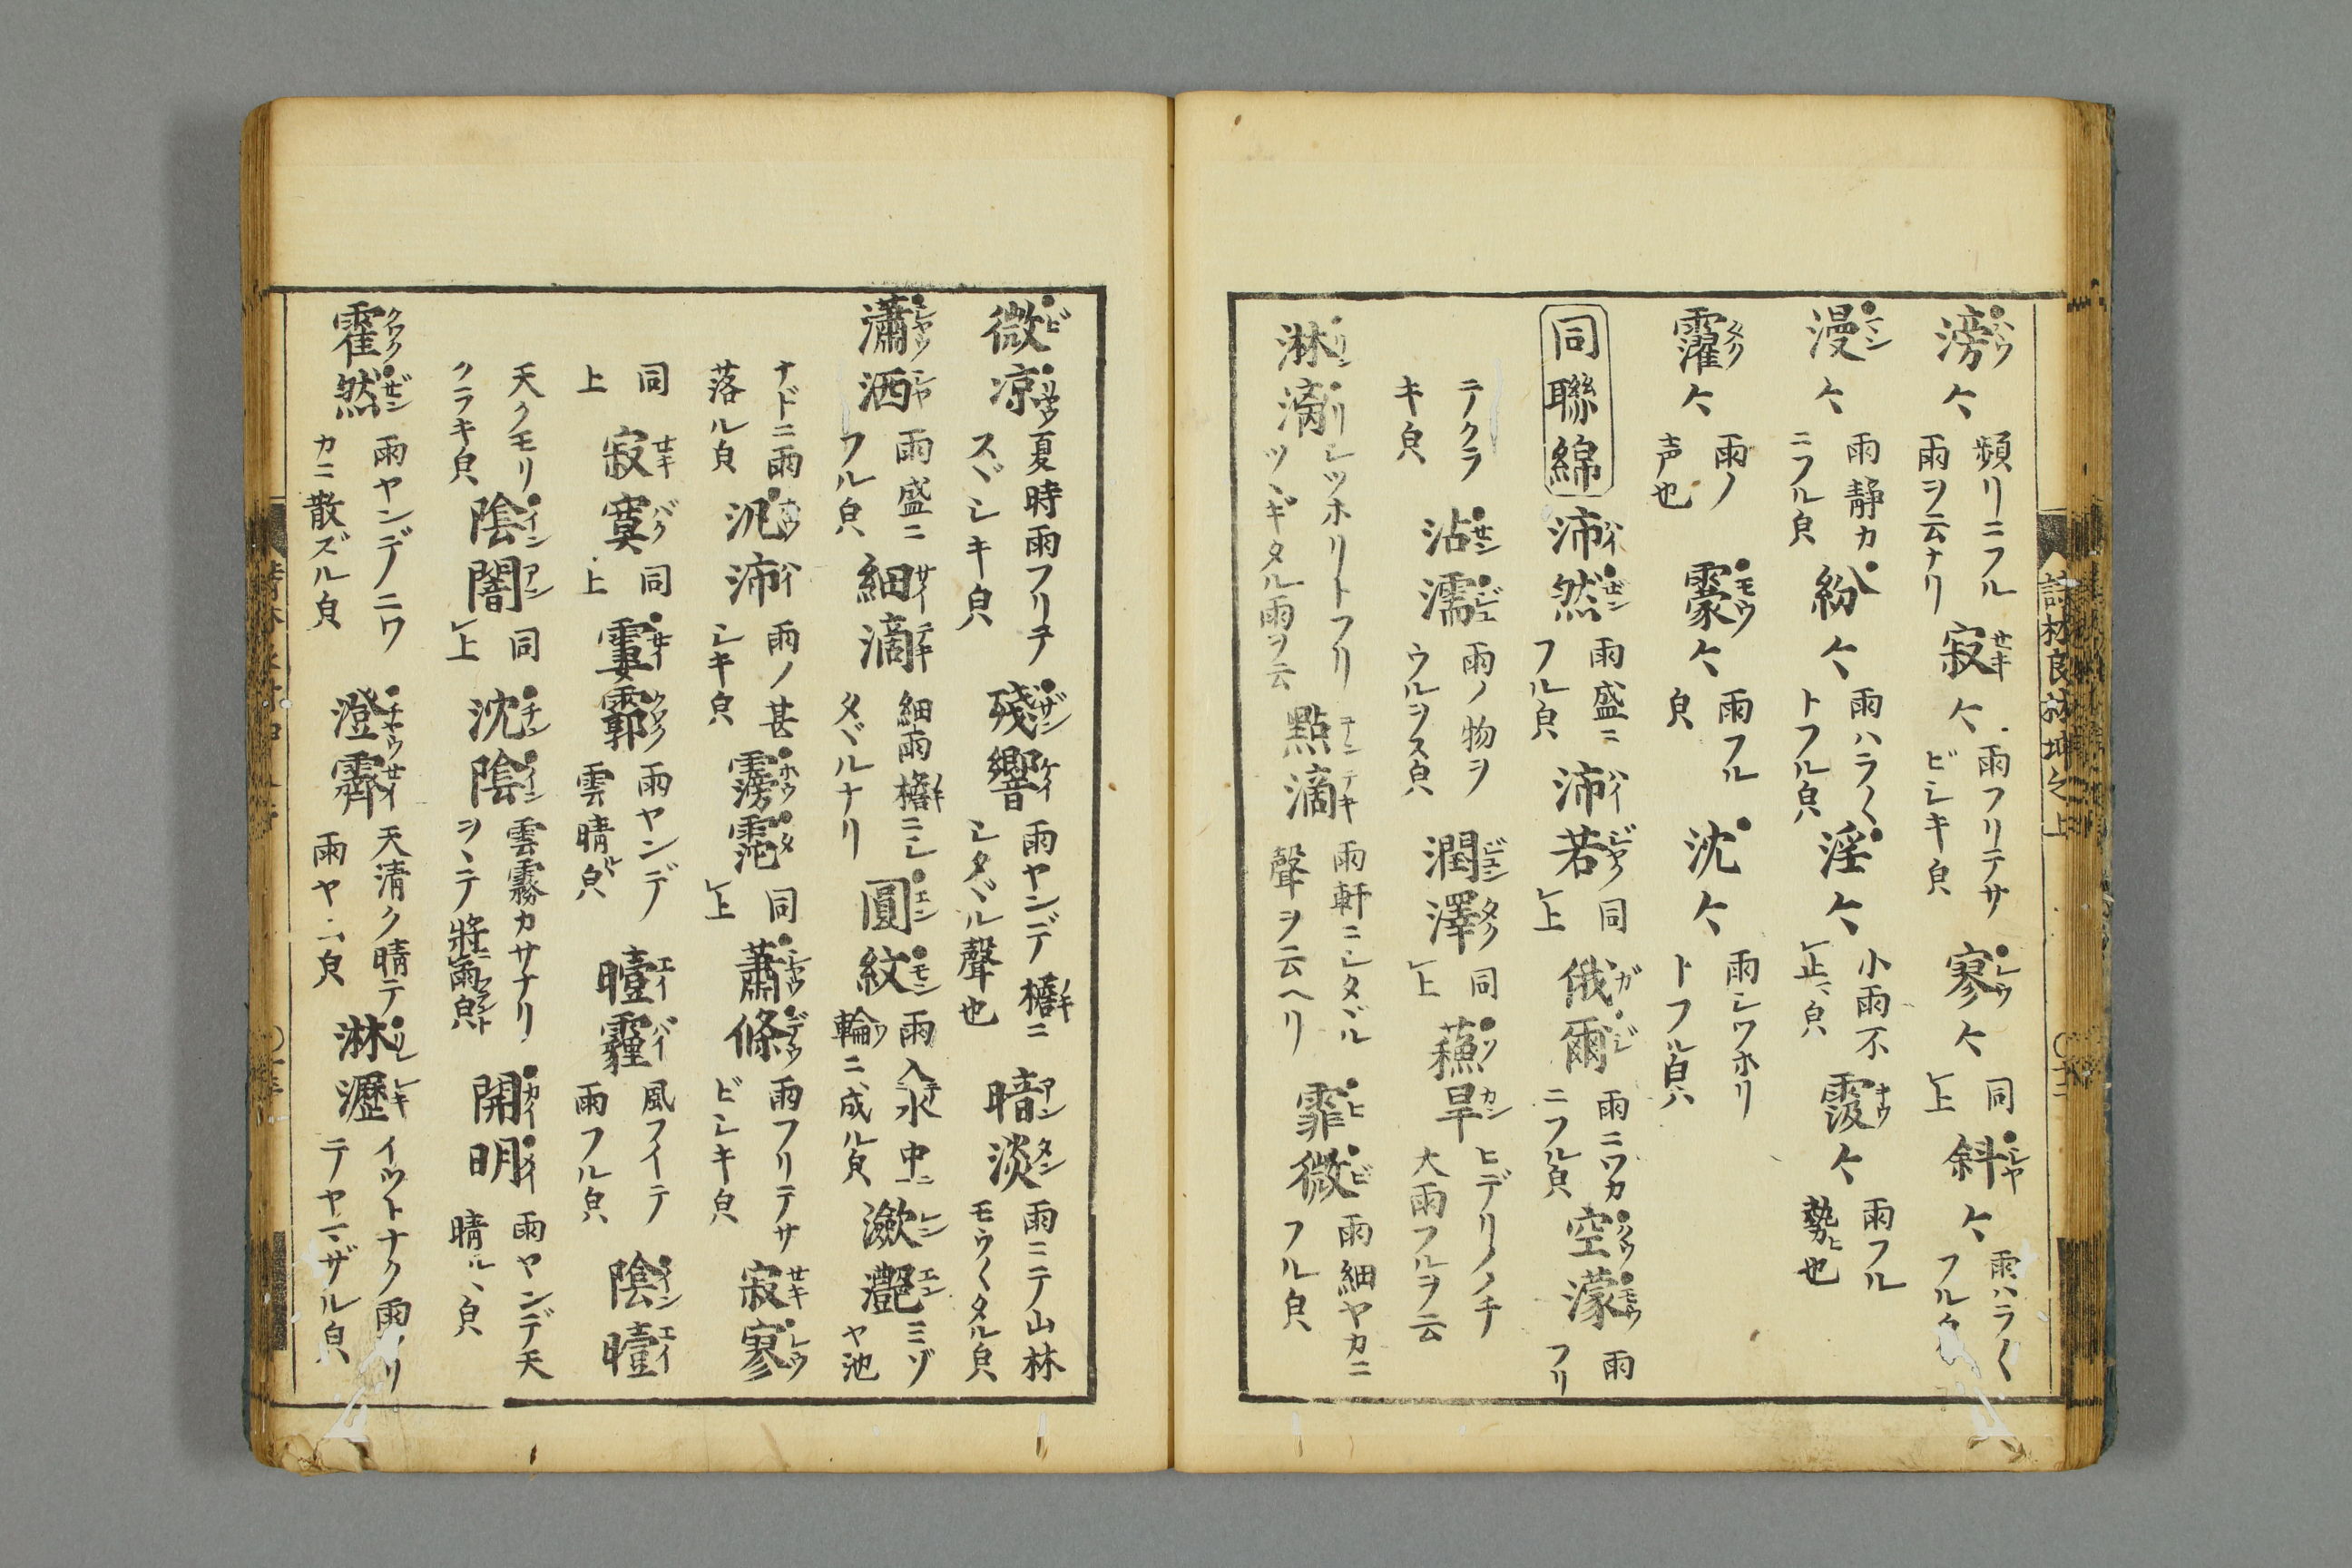 詩材良材坤之上
滂〻 頻リニフル雨ヲ云ナリ 寂〻 雨フリテサビシキ皃 寥〻 同上 斜〻 雨ハラ〳〵フル
漫〻 雨静カニフル皃 紛〻 雨ハラ〳〵トフル皃 淫〻 小雨不止皃 霞〻 雨フル勢ヒ也
霍〻 雨ノ声也 霥〻 雨フル皃 沈〻 雨シツホリトフル皃
同聯綿 沛然 雨盛ニフル皃 沛若 同上 俄爾 雨ニワカニフル皃 空濛 雨フリ
テクラキ皃 沾濡 雨ノ物ヲウルヲス皃 潤澤 同上 蘓旱 ヒデリノノチ大雨フルヲ云
淋滴 シツホリトフリツヾギタル雨ヲ云 點滴 雨軒ニシタヾル聲ヲ云ヘリ 霏微 雨細ヤカニフル皃
微凉 夏時雨フリテスヾシキ皃 殘響 雨ヤンデ檐ニシタヾル聲也 暗淡 雨ニテ山林モウ〳〵タル皃
瀟洒 雨盛ニフル皃 細滴 細雨檐ニシタヾルナリ 圓紋 雨入水中ニ輪ニ成ル皃 瀲灔 ミゾヤ池
ナドニ雨落ル皃 汎沛 雨ノ甚シキ皃 霶霑 同上 蕭條 雨フリテサビシキ皃 寂寥
同上 寂寞 同上 霎霩 雨ヤンデ雲晴ル皃 曀霾 風フイテ雨フル皃 陰曀
天クモリクラキ皃 陰闇 同上 沈陰 雲霧カサナリヲヽテ將雨皃 開明 雨ヤンデ天晴ルヽ皃
霍然 雨ヤンデニワカニ散ズル皃 澄霽 天清ク晴テ雨ヤム皃 淋瀝 イツトナク雨フリテヤマザル皃